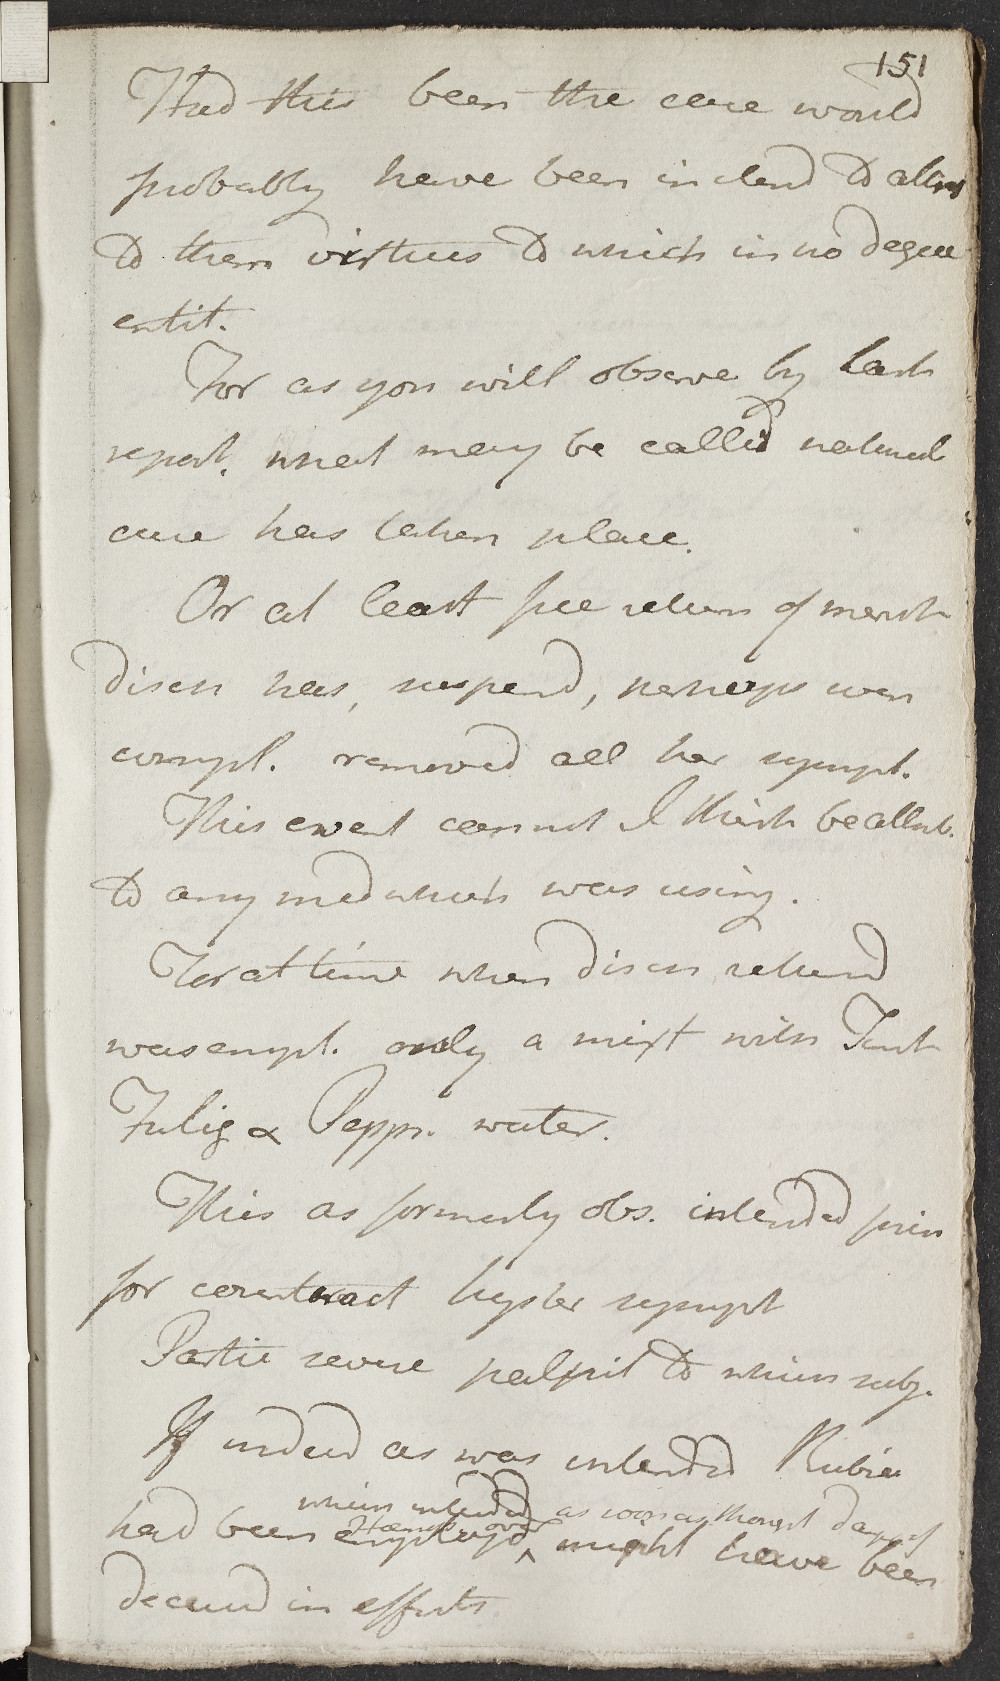 151
Had this been the case would
probably have been inclend to allow
to them virtues to which in no degree
entit.
For as you will observe by last
report. what may be called natural
cure has taken place.
Or at least free return of menst
disch has, suspend, perhaps even
compl. removed all her sympt.
This event cannot I think be attrib.
to any med which was using.
For at time when disch returnd
was empl. only a mixt with Tinct
Fulig & Pepper. water.
This as formerly obs. intended prin
for counteract hyster sympt
Partic severe palpit to which subj.
If indeed as was intended Rubia
which intended as soon as thought dang of
Hæmor over
had been employd ^ might have been
deceivd in effects